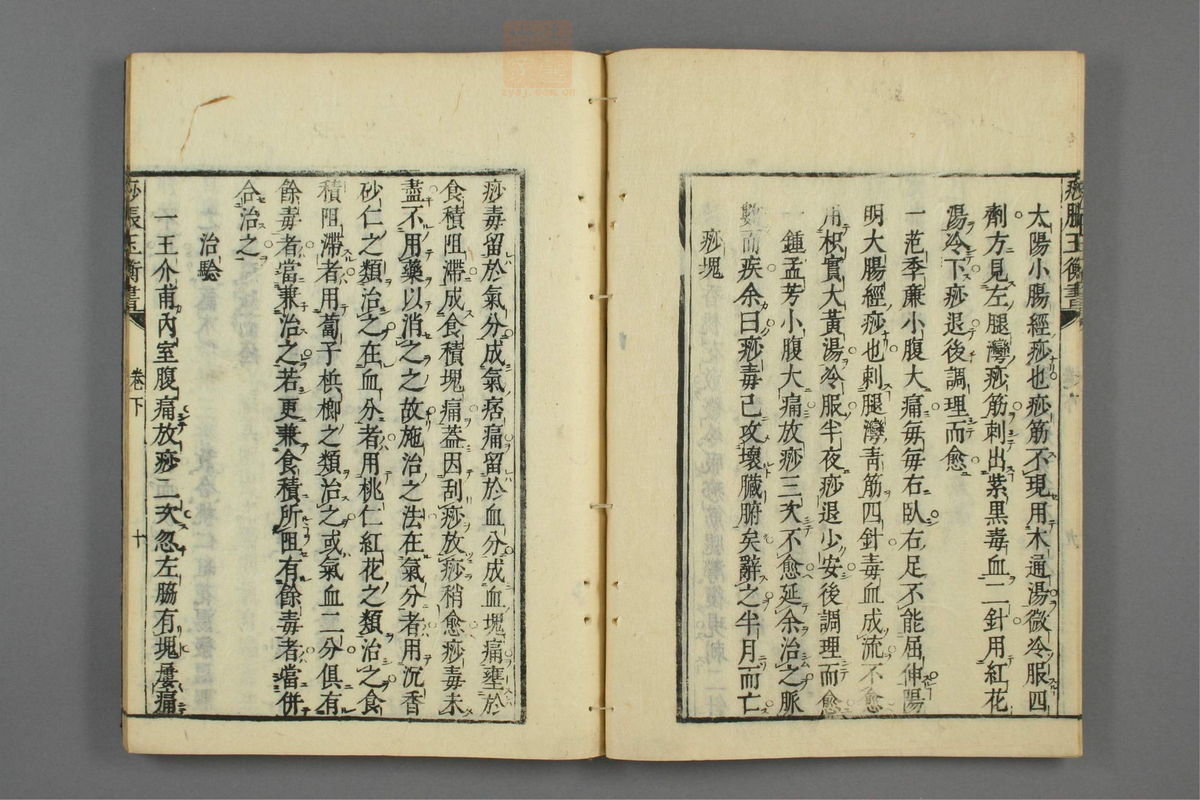 痧脹玉衡書
太陽小腸經痧也痧筋不現用木通湯微冷服四
劑方見左腿灣痧筋刺出紫黑毒血二針用紅花
湯冷下痧退後調理而愈
一范季亷小腹大痛每每右臥右足不能屈伸陽
明大腸經痧也刺腿灣青筋四針毒血成流不愈
用枳實大黃湯冷服半夜痧退少安後調理而愈
一鍾孟芳小腹大痛放痧三次不愈延余治之脈
數而疾余曰痧毒已攻壞臟腑矣辭之半月而亡
痧塊
痧毒留於氣分成氣痞痛留於血分成血塊痛壅於
食積阻滯成食積塊痛葢因刮痧放痧稍愈痧毒未
盡不用藥以消之之故施治之法在氣分者用沉香
砂仁之類治之在血分者用桃仁紅花之類治之食
積阻滯者用蔔子檳榔之類治之或氣血二分俱有
餘毒者當兼治之若更兼食積所阻有餘毒者當併
合治之
治驗
一王介甫內室腹痛放痧二次忽左脇有塊屢痛
痧張玉衡書
卷下
十